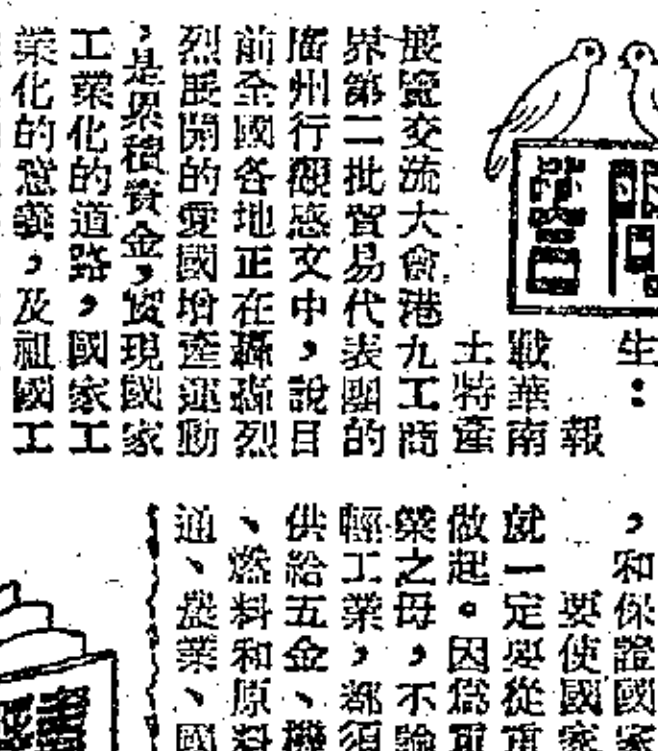 生：
報
戰華南
土特產
展覽交流大會港九工商
界第二批貿易代表團的
廣州行觀感文中，說目
前全國各地正在轟轟烈
烈展開的愛國增產運動
，是累積資金，實現國家
工業化的道路，國家工
業化的意義，及祖國工
，和保證國家
要使國家
就一定要從重
做起。因爲重
業之母，不論
輕工業，都須
供給五金、機
、燃料和原料
通、農業、國